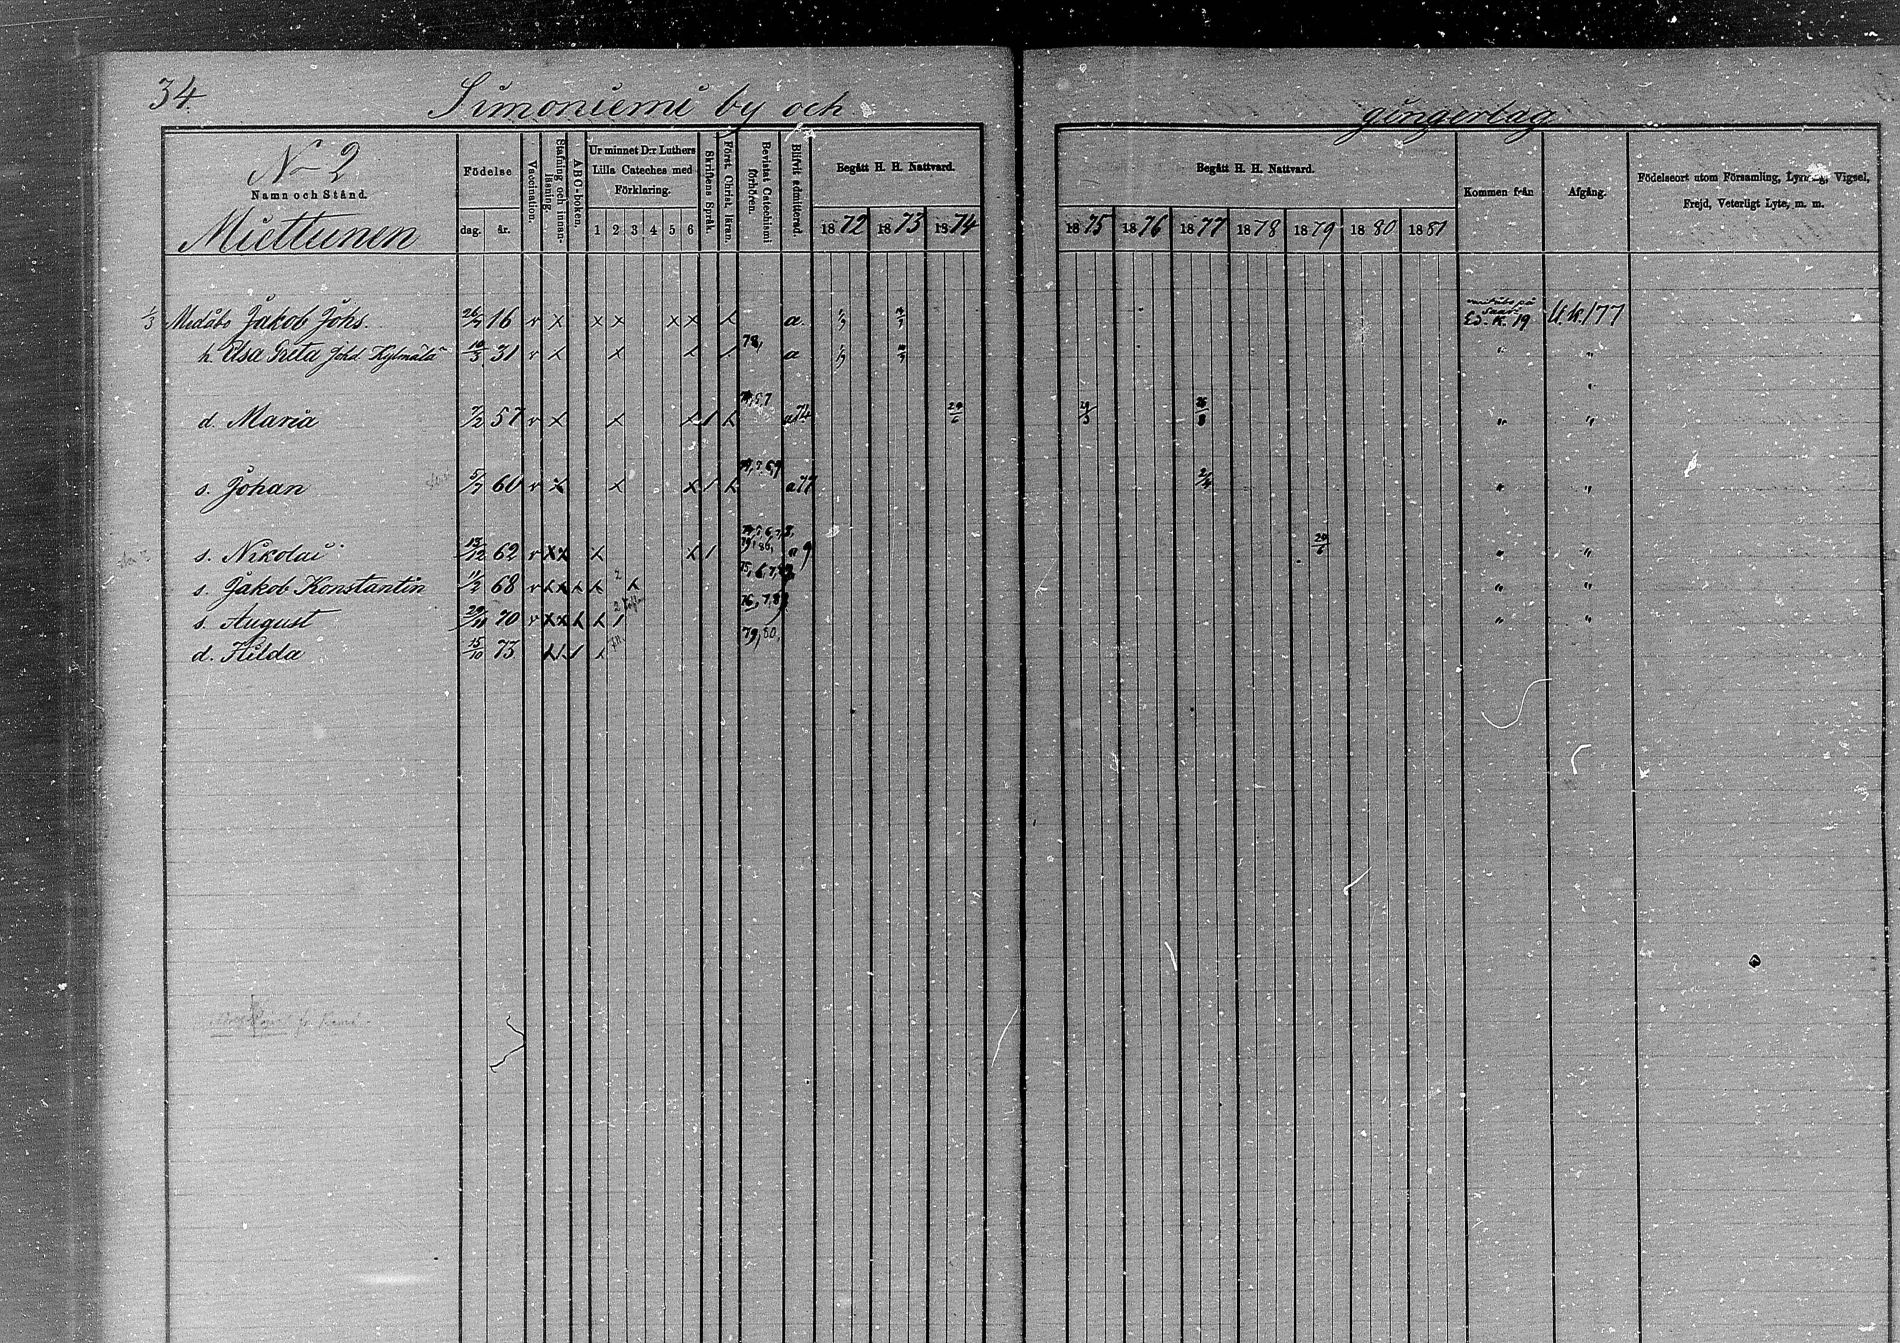 34
Simoniemi by och
gingerbag
No 2
Namn och Stånd.
Miettunen
Födelse
dag. år.
Vaccination.
Stafning och innan-läsning.
ABC-boken.
Ur minnet D:r Luthers Lilla Cateches med Förklaring.
1 2 3 4 5 6
Skriftens Språk.
Först. Christ. läran.
Bevistat Catechismi förhören.
Blifvit admitterad.
Begått H. H. Nattvard.
1872 1873 1874
Begått H. H. Nattvard.
1875 1876 1877 1878 1879 1880 1881
Kommen från
Afgång.
Födelseort utom Församling, Lysning, Vigsel, Frejd, Veterligt Lyte, m. m.
1/3 Medåbo Jakob Johs. 26/7 16 v x x x x x x a. Ed. K. 19 U. k. 177
h. Elsa Greta Johd. Kylmälä 10/3 31 v x x x x x 78, a " "
"
d. Maria 7/2 57 v x x x 1 x a 74. 29/6 25/8 " "
s. Johan 5/7 60 v x x x 1 x a 77 2/4 " "
s. Nikolai 13/12 62 v x x x x 1 a 9 29/6 " "
s. Jakob Konstantin 11/2 68 v x x x x 2 x " "
s. August 29/11 70 v x x x x 1 2 76, 7, 8 " "
d. Hilda 15/10 73 x 1 1 x 79, 80,